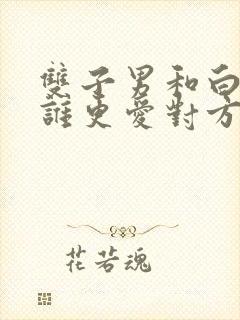 雙子男和白
誰更愛對方
花若魂